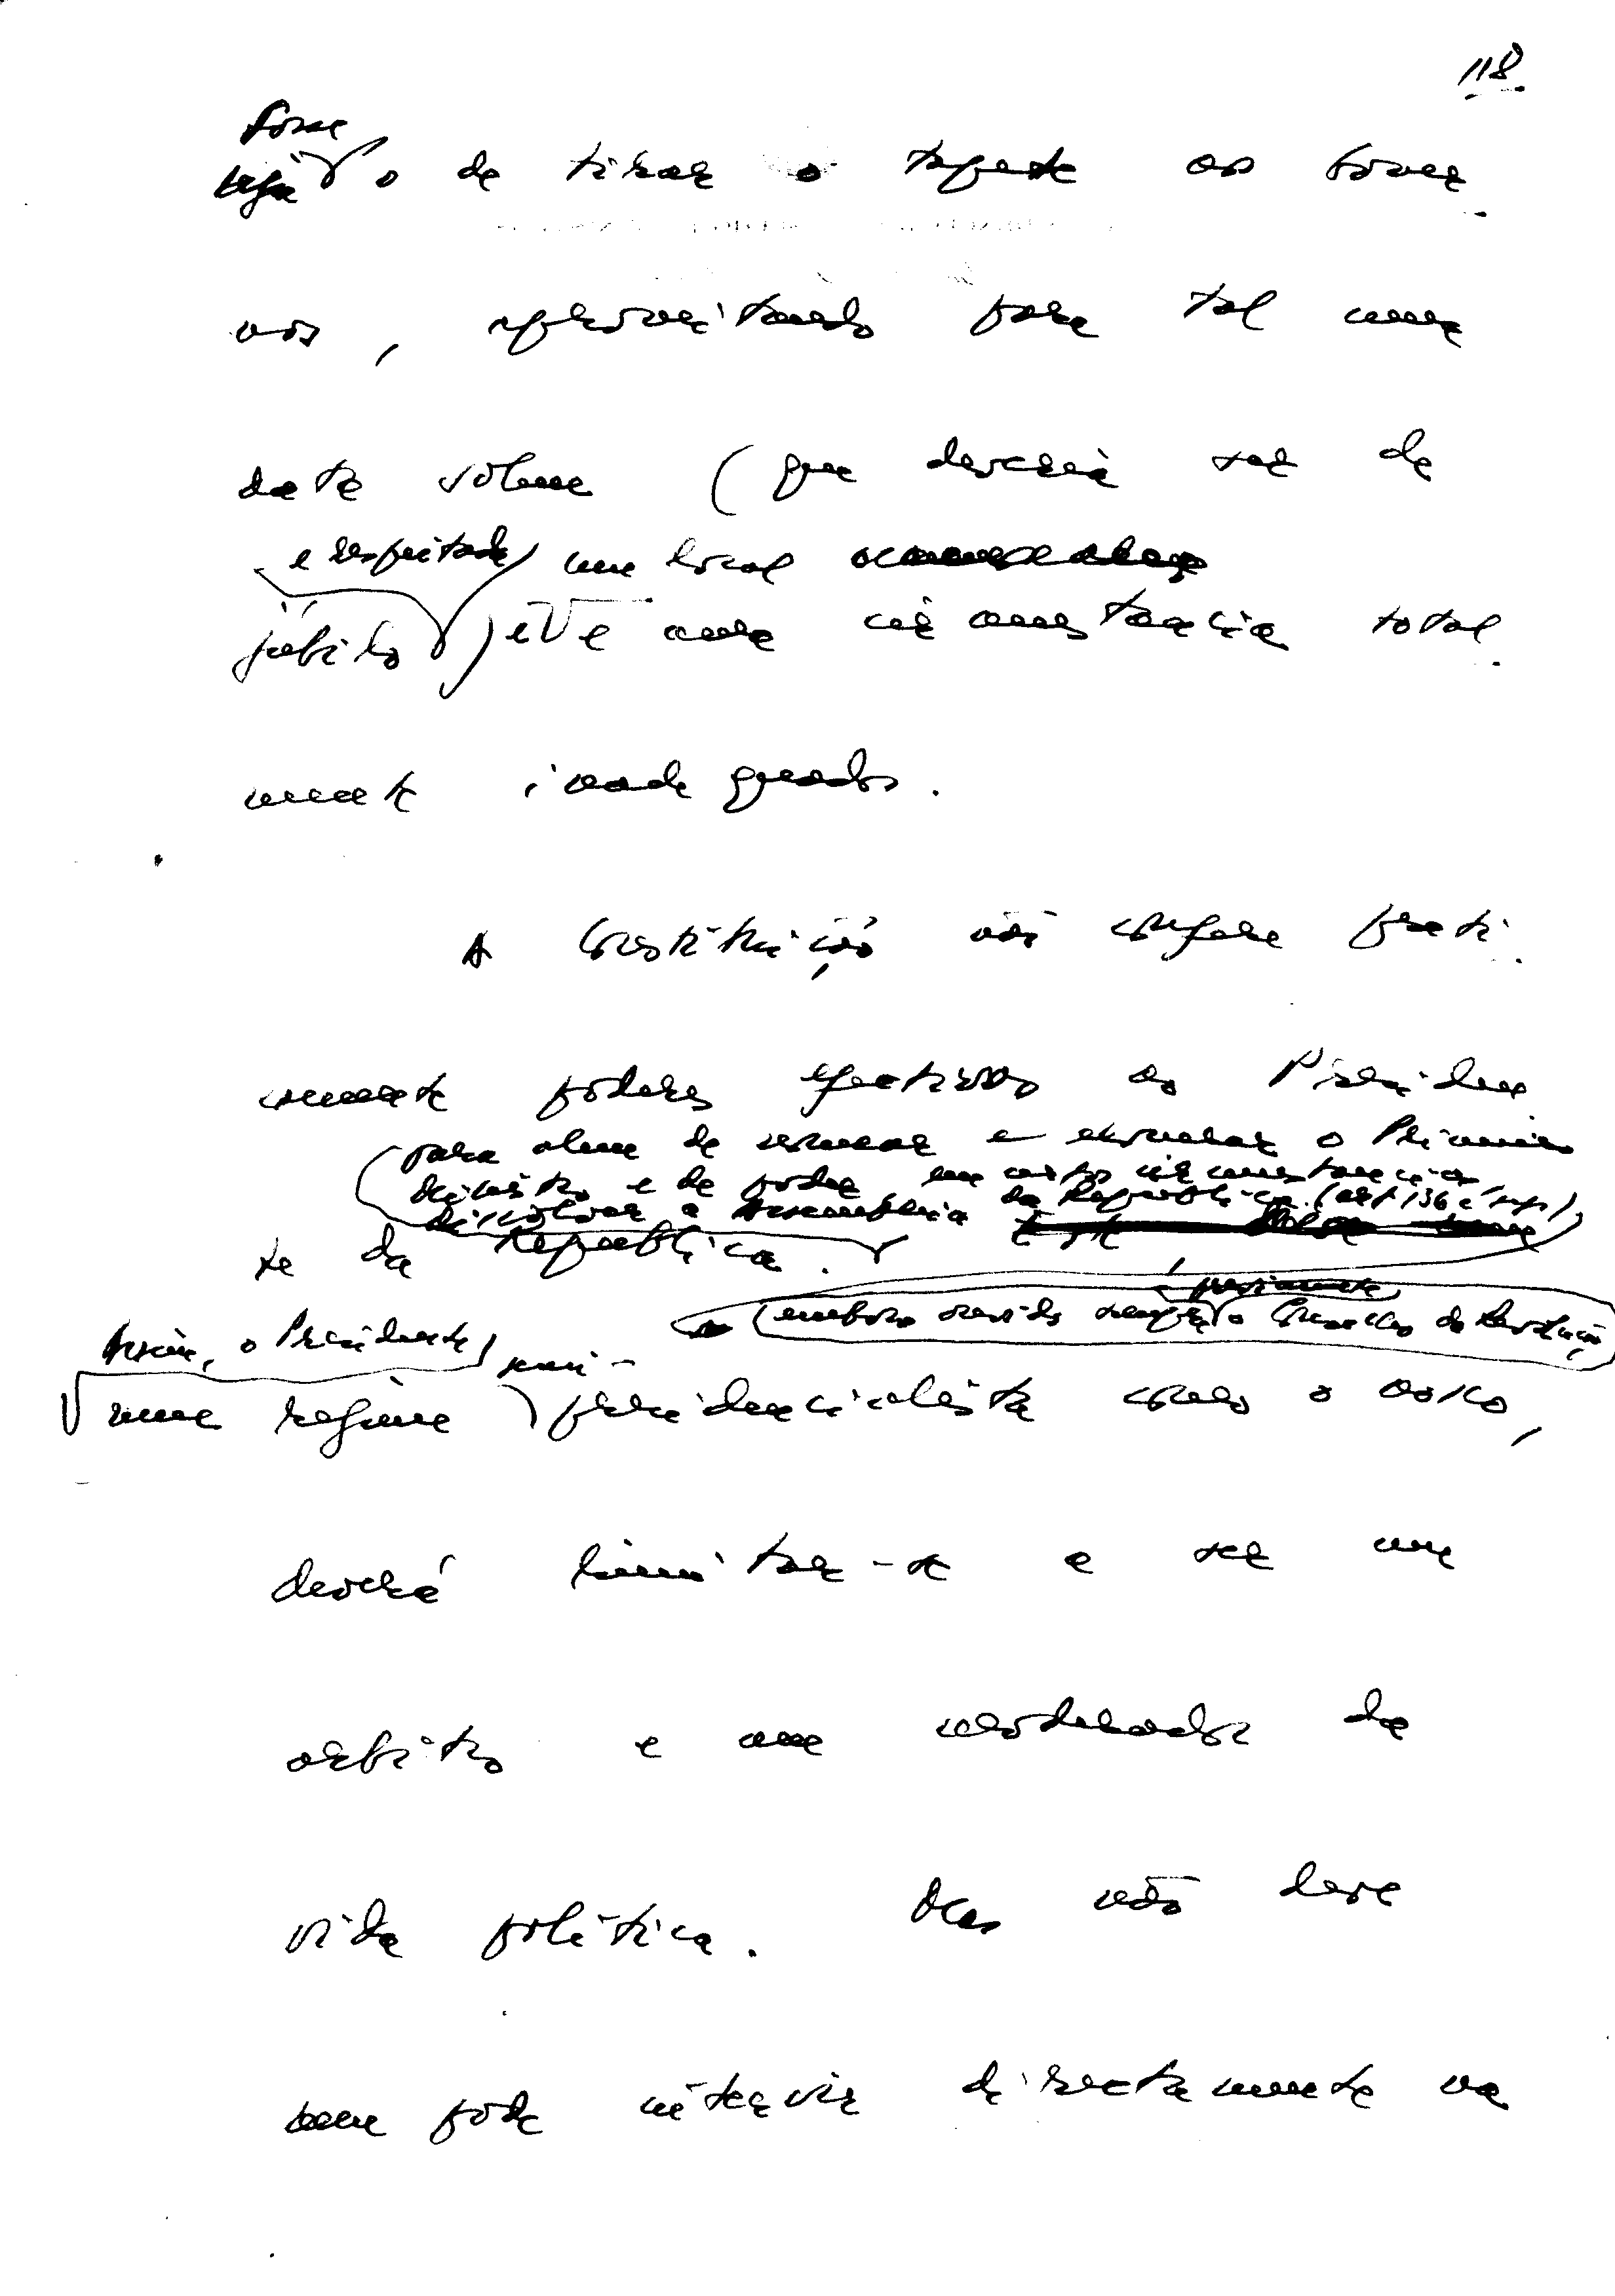 118
fosse
seja o de tirar o tapete ao Gover
no, aproveitando para tal uma
data solene (que deveria ser de
e respeitada, um local
júbilo) e uma circunstância total
mente inadequados.
A Constituição não confere prati
camente poderes efectivos ao Presiden
para além de nomear e exonerar o Primeiro
Ministro e de poder em certas circunstancias
dissolver a Assembleia da República (artº 136 e
te da República.
previamente
embora ouvido sempre o Conselho da Revolução
Assim, o Presidente, semi-
num regime presidencialista como o nosso,
deverá limitar-se a ser um
arbitro e um moderador da
vida política. Mas não deve
nem pode intervir directamente na